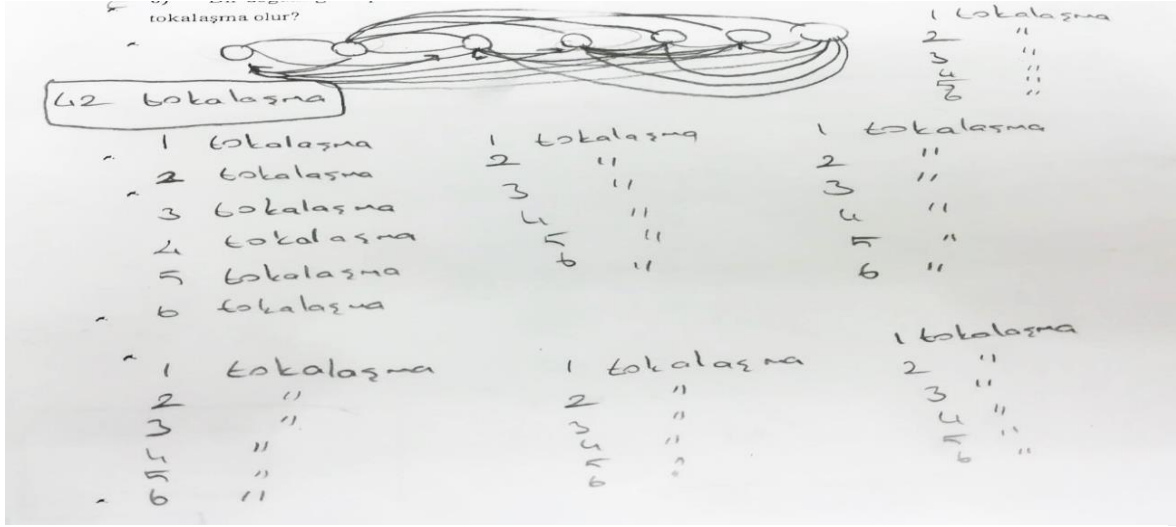 tokalaşma olur?
42 tokalaşma
1 tokalaşma
2 "
3 "
4 "
5 "
6 "
1 tokalaşma
2 tokalaşma
3 tokalaşma
4 tokalaşma
5 tokalaşma
6 tokalaşma
1 tokalaşma
2 "
3 "
4 "
5 "
6 "
1 tokalaşma
2 "
3 "
4 "
5 "
6 "
1 tokalaşma
2 "
3 "
4 "
5 "
6 "
1 tokalaşma
2 "
3 "
4 "
5 "
6
1 tokalaşma
2 "
3 "
4 "
5 "
6 "